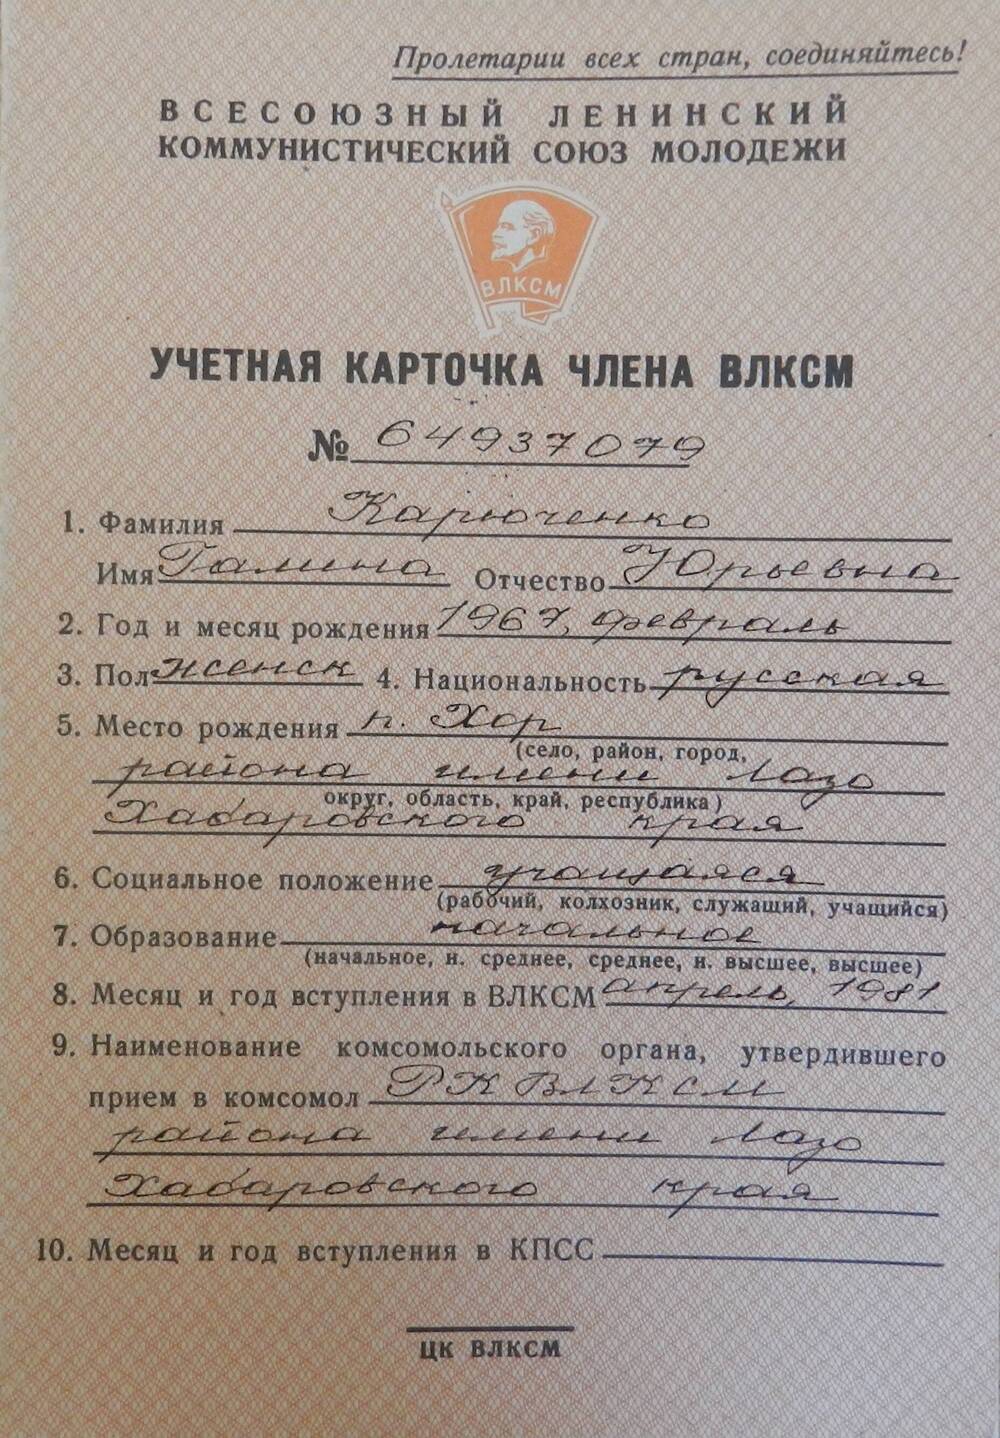 Пролетарии всех стран, соединяйтесь!
ВСЕСОЮЗНЫЙ ЛЕНИНСКИЙ
КОММУНИСТИЧЕСКИЙ СОЮЗ МОЛОДЕЖИ
ВЛКСМ
УЧЕТНАЯ КАРТОЧКА ЧЛЕНА ВЛКСМ
№ 64937079
1. Фамилия Карюченко
Имя Галина Отчество Юрьевна
2. Год и месяц рождения 1967, февраль
3. Пол женск 4. Национальность русская
5. Место рождения п. Хор
(село, район, город,
района имени Лазо
округ, область, край, республика)
Хабаровского края
6. Социальное положение учащаяся
(рабочий, колхозник, служащий, учащийся)
7. Образование начальное
(начальное, н. среднее, среднее, н. высшее, высшее)
8. Месяц и год вступления в ВЛКСМ апрель, 1981
9. Наименование комсомольского органа, утвердившего
прием в комсомол РК ВЛКСМ
района имени Лазо
Хабаровского края
10. Месяц и год вступления в КПСС
ЦК ВЛКСМ